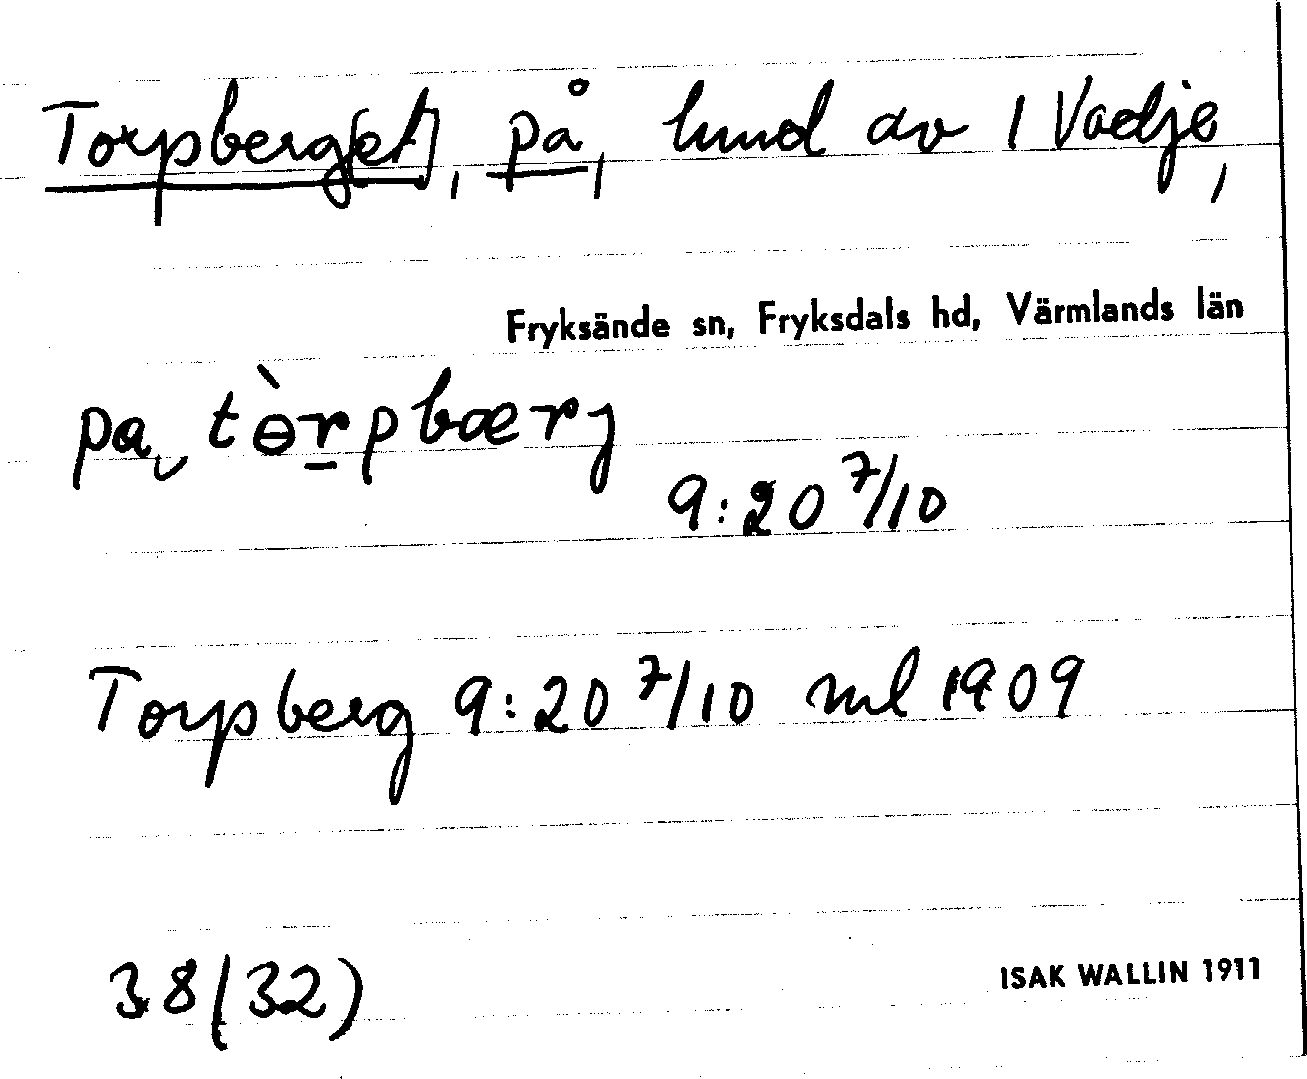 Torpberg(et), på, lund av 1 Vadje,
Fryksände sn, Fryksdals hd, Värmlands län
pa tὸrpbærj
9:20 7/10
Torpberg 9:20 7/10 ml 1909
38(32)
ISAK WALLIN 1911